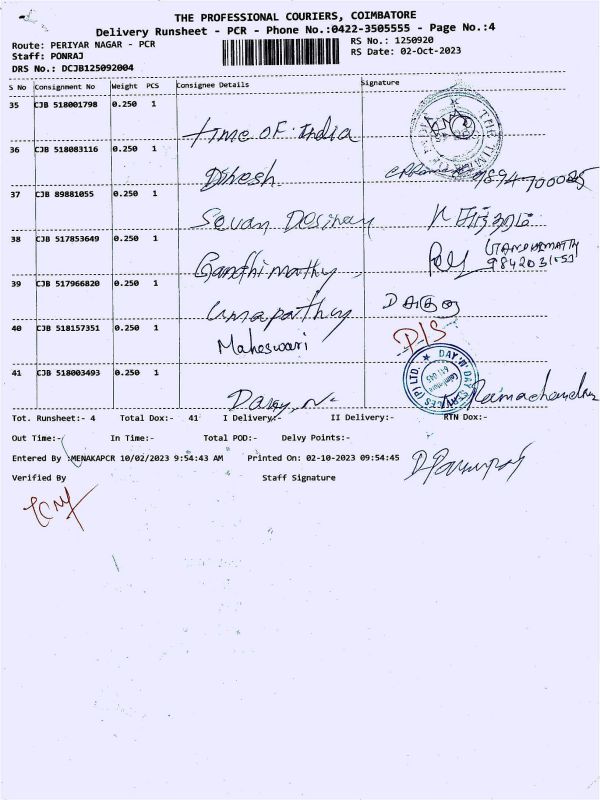 THE PROFESSIONAL COURIERS, COIMBATORE
Delivery Runsheet - PCR - Phone No.:0422-3505555 - Page No.:4
Route: PERIYAR NAGAR - PCR
RS No.: 1250920
Staff: PONRAJ
RS Date: 02-Oct-2023
DRS No.: DCJB125092004
S No Consignment No Weight PCS Consignee Details Signature
35 CJB 518001798 0.250 1
Time OF India
36 CJB 518083116 0.250 1
Dinesh
37 CJB 89881055 0.250 1
38 CJB 517853649 0.250 1
Gandhimathy
9842031551
39 CJB 517966820 0.250 1
Umapathy
40 CJB 518157351 0.250 1
Maheswari
P/S
41 CJB 518003493 0.250 1
DAY 'N' DAY SERVICES (P) LTD.
Ramachandra
Tot. Runsheet:- 4 Total Dox:- 41 I Delivery:- II Delivery:- RTN Dox:-
Out Time:- In Time:- Total POD:- Delvy Points:-
Entered By :MENAKAPCR 10/02/2023 9:54:43 AM Printed On: 02-10-2023 09:54:45
Verified By Staff Signature